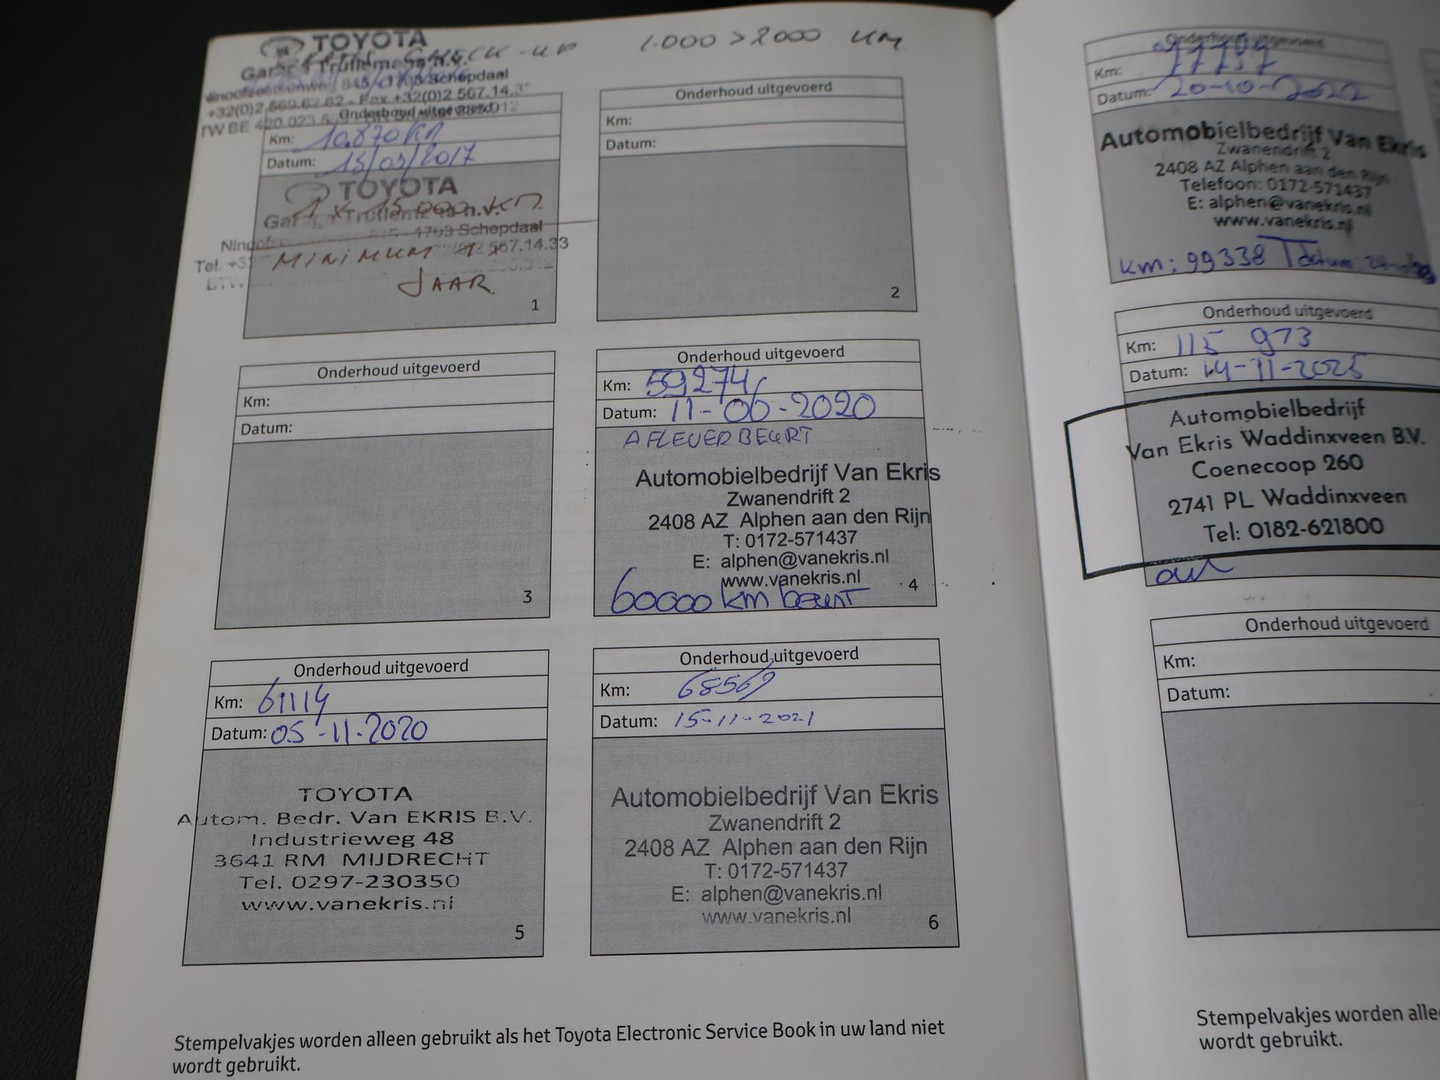 TOYOTA
CHECK-UP 1.000 > 2000 KM
Schepdaal
Onderhoud uitgevoerd
Km: 10.870 KM
Datum: 15/03/2017
TOYOTA
1 X 15.000 KM
4703 Schepdaal
MINIMUM 1X
JAAR
1
Onderhoud uitgevoerd
Km:
Datum:
2
Onderhoud uitgevoerd
Km:
Datum:
3
Onderhoud uitgevoerd
Km: 59274
Datum: 11-06-2020
AFLEVERBEURT
Automobielbedrijf Van Ekris
Zwanendrift 2
2408 AZ Alphen aan den Rijn
T: 0172-571437
E: alphen@vanekris.nl
www.vanekris.nl
60000 km beurt
4
Onderhoud uitgevoerd
Km: 61114
Datum: 05-11-2020
TOYOTA
Autom. Bedr. Van EKRIS B.V.
Industrieweg 48
3641 RM MIJDRECHT
Tel. 0297-230350
www.vanekris.nl
5
Onderhoud uitgevoerd
Km: 68569
Datum: 15-11-2021
Automobielbedrijf Van Ekris
Zwanendrift 2
2408 AZ Alphen aan den Rijn
T: 0172-571437
E: alphen@vanekris.nl
www.vanekris.nl
6
Stempelvakjes worden alleen gebruikt als het Toyota Electronic Service Book in uw land niet
wordt gebruikt.
Onderhoud uitgevoerd
Km: 77797
Datum: 20-10-2022
Automobielbedrijf Van Ekris
Zwanendrift 2
2408 AZ Alphen aan den Rijn
Telefoon: 0172-571437
E: alphen@vanekris.nl
www.vanekris.nl
km: 99338 datum
Onderhoud uitgevoerd
Km: 115 973
Datum: 14-11-2025
Automobielbedrijf
Van Ekris Waddinxveen B.V.
Coenecoop 260
2741 PL Waddinxveen
Tel: 0182-621800
Onderhoud uitgevoerd
Km:
Datum:
Stempelvakjes worden alle
wordt gebruikt.